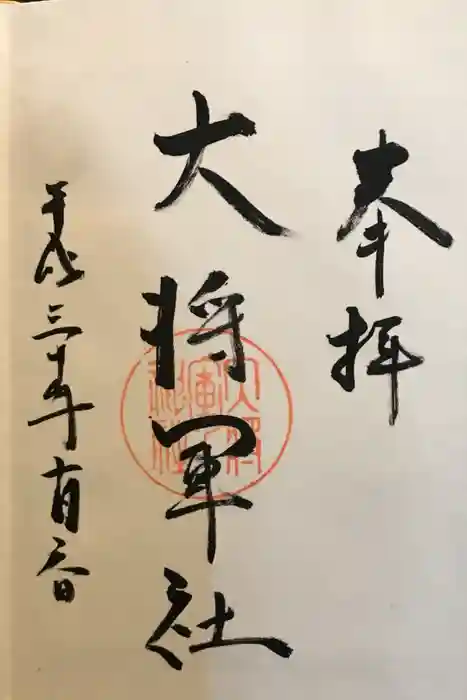 奉拝
大将軍社
平成三十年 月 日